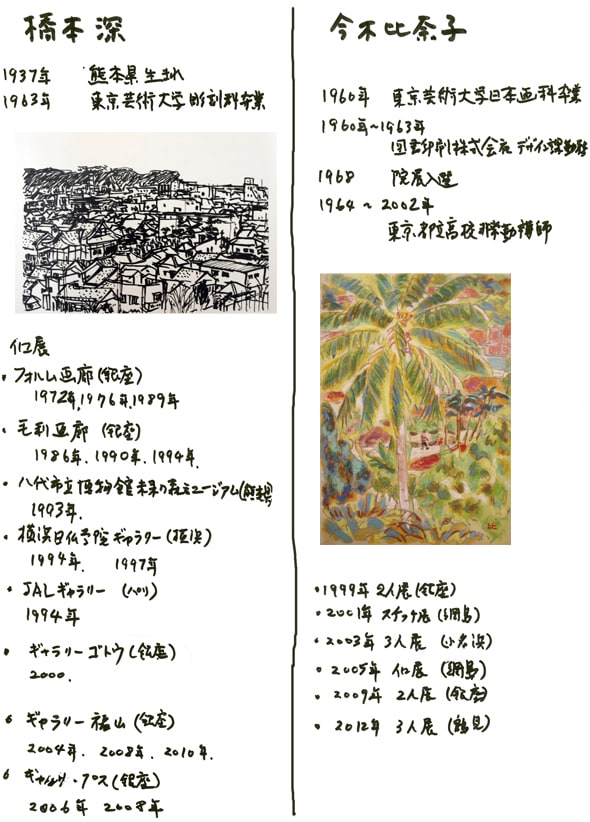 橋本 深
1937年 熊本県生まれ
1963年 東京芸術大学彫刻科卒業
個展
・フォルム画廊(銀座)
1972年,1976年,1989年
・毛利画廊 (銀座)
1986年.1990年.1994年.
・八代市立博物館未来の森ミュージアム(熊本県)
1993年.
・横浜日仏学院ギャラリー(横浜)
1994年. 1997年
・JALギャラリー (パリ)
1994年
・ギャラリーゴトウ(銀座)
2000.
・ギャラリー福山(銀座)
2004年. 2008年. 2010年.
・ギャルリ・プス(銀座)
2006年 2008年
今木比奈子
1960年 東京芸術大学日本画科卒業
1960年~1963年
図書印刷株式会社デザイン課勤務
1968 院展入選
1964~2002年
東京都立高校非常勤講師
比
・1999年 2人展(銀座)
・2001年 スケッチ展(綱島)
・2003年 3人展 (小名浜)
・2005年 個展 (綱島)
・2009年 2人展 (銀座)
・2012年 3人展 (鶴見)